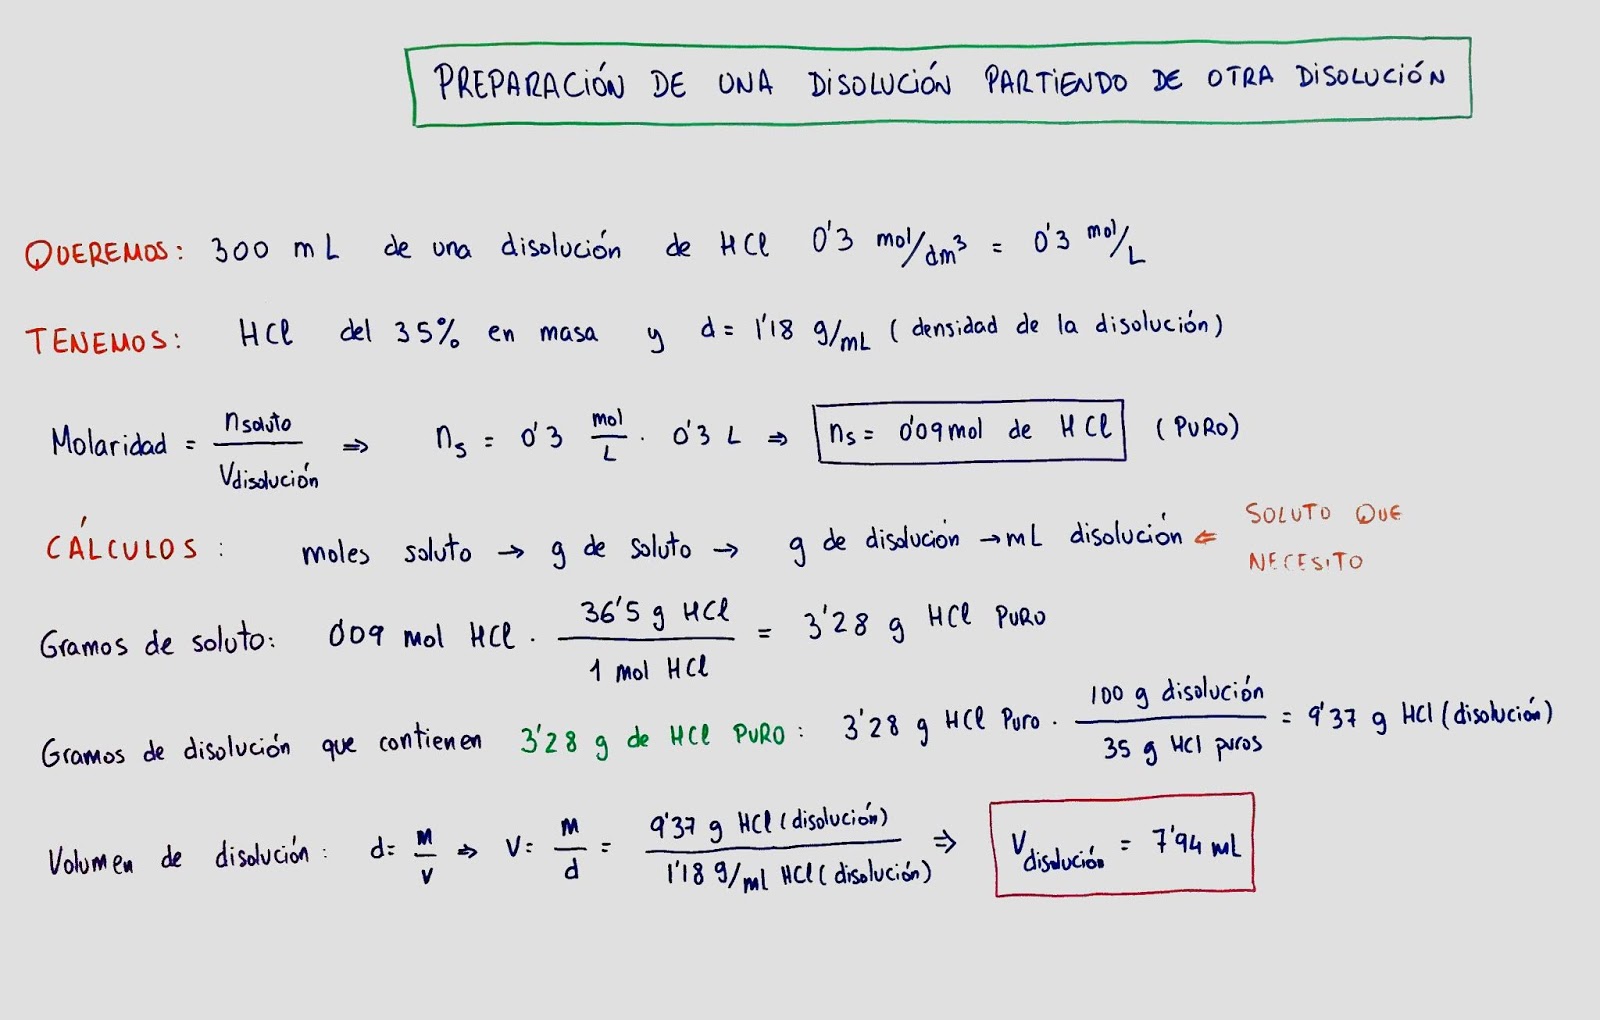 PREPARACIÓN DE UNA DISOLUCIÓN PARTIENDO DE OTRA DISOLUCIÓN
QUEREMOS: 300 mL de una disolución de HCl 0'3 mol/dm³ = 0'3 mol/L
TENEMOS: HCl del 35% en masa y d = 1'18 g/mL (densidad de la disolución)
Molaridad = nsoluto / Vdisolución ⇒ ns = 0'3 mol/L · 0'3 L ⇒ ns = 0'09 mol de HCl (PURO)
CÁLCULOS: moles soluto → g de soluto → g de disolución → mL disolución ⇐ SOLUTO QUE NECESITO
Gramos de soluto: 0'09 mol HCl · 36'5 g HCl / 1 mol HCl = 3'28 g HCl PURO
Gramos de disolución que contienen 3'28 g de HCl PURO: 3'28 g HCl Puro · 100 g disolución / 35 g HCl puros = 9'37 g HCl (disolución)
Volumen de disolución: d = M/V ⇒ V = M/d = 9'37 g HCl (disolución) / 1'18 g/ml HCl (disolución) ⇒ Vdisolución = 7'94 mL